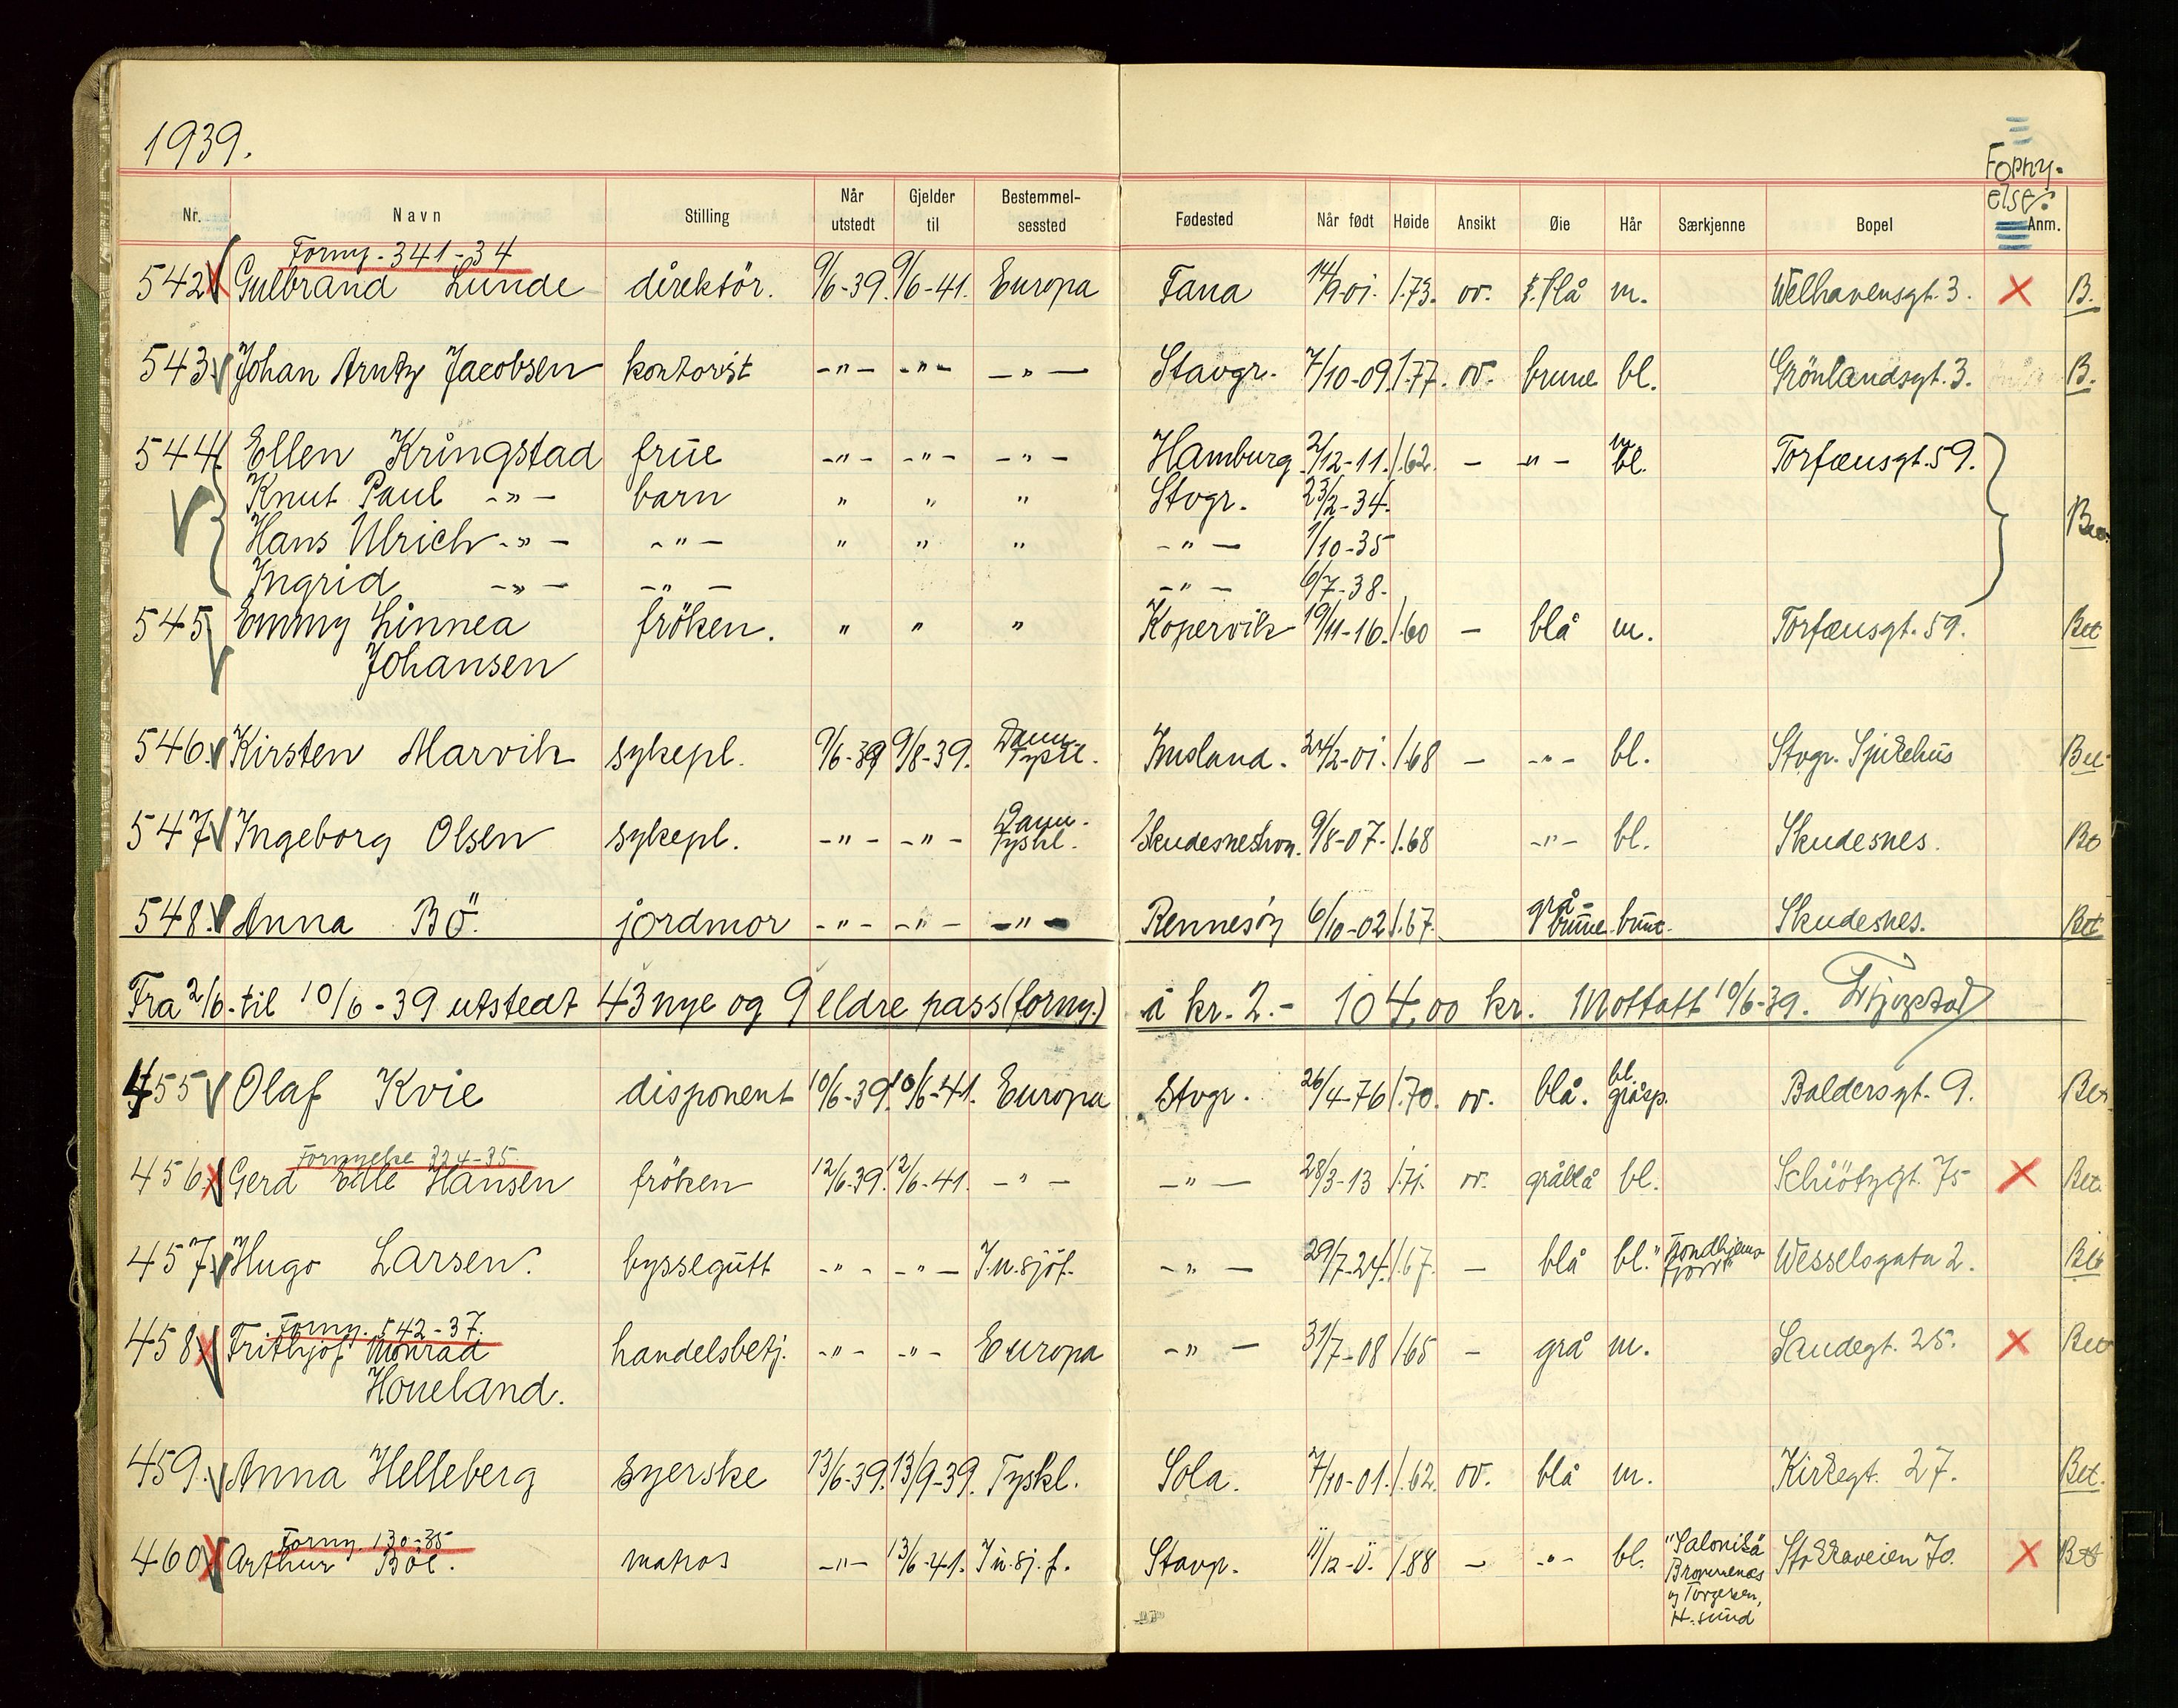 1939.
Forny-
else:
Nr. Navn Stilling Når utstedt Gjelder til Bestemmelsessted Fødested Når født Høide Ansikt Øie Hår Særkjenne Bopel Anm.
Forny. 341-34
542 Gulbrand Lunde direktör. 9/6-39. 9/6-41. Europa Fana 14/9-01. 1.73. ov. blå m. Welhavensgt. 3. X B.
543 Johan Arntz Jacobsen kontorist -"- -"- -"- Stavgr. 7/10-09. 1.77. ov. brune bl. Grönlandsgt. 3. B.
544 Ellen Kringstad frue -"- -"- -"- Hamburg 2/12-11. 1.62. - -"- m. bl. Torfæusgt. 59.
Knut Paul -"- barn " " " Stvgr. 23/2-34.
Hans Ulrich -"- -"- " " " -"- 1/10-35
Ingrid -"- -"- -"- 6/7-38.
545 Emmy Linnea fröken. " " " Kopervik 19/11-16. 1.60 - blå m. Torfæusgt. 59. Bet
Johansen
546. Kirsten Marvik sykepl. 9/6-39 9/8-39. Danm.- Tyskl. Imsland. 24/2-01. 1.68 - -"- bl. Stvgr. Sjukehus Bet
547 Ingeborg Olsen sykepl. -"- -"- Danm.- Tyskl. Skudesneshvn. 9/8-07. 1.68 -"- bl. Skudesnes.
548. Anna Bö. jordmor -"- -"- -"- Rennesöy 6/10-02 1.67. grå-brune brunt. Skudesnes. Bet
Fra 2/6. til 10/6-39 utstedt 43 nye og 9 eldre pass (forny.) á kr. 2.- 104.00 kr. Mottatt 10/6-39.
455 Olaf Kvie disponent 10/6-39. 10/6-41. Europa Stvgr. 26/4-76 1.70. ov. blå. bl. gråsp. Baldersgt. 9. Bet
Fornyelse 324-35.
456 Gerd Edle Hansen fröken 12/6-39. 12/6-41. -"- -"- 28/3-13 1.71. ov. gråblå bl. Schiötzgt. 75 X Bet.
457 Hugo Larsen. byssegutt -"- -"- I.u.sjöf. -"- 29/7-24. 1.67. - blå bl. "Trondhjemsfjord" Wesselsgata 2. Bet
Forny. 542-37.
458 Frithjof Monrad handelsbetj. -"- -"- Europa -"- 31/7-08 1.65 - grå m. Sandegt. 25. X Bet
Houeland.
459. Anna Helleberg syerske 13/6-39. 13/9-39. Tyskl. Sola. 7/10-01. 1.62. ov. blå m. Kirkegt. 27. Bet.
Forny. 130-35
460 Arthur Böe. matros -"- 13/6-41. I u.sj.f. Stavgr. 11/12-11. 1.88 - -"- bl. "Salonika" Stokkaveien 70. X Bet
og Torgersen,
H.sund